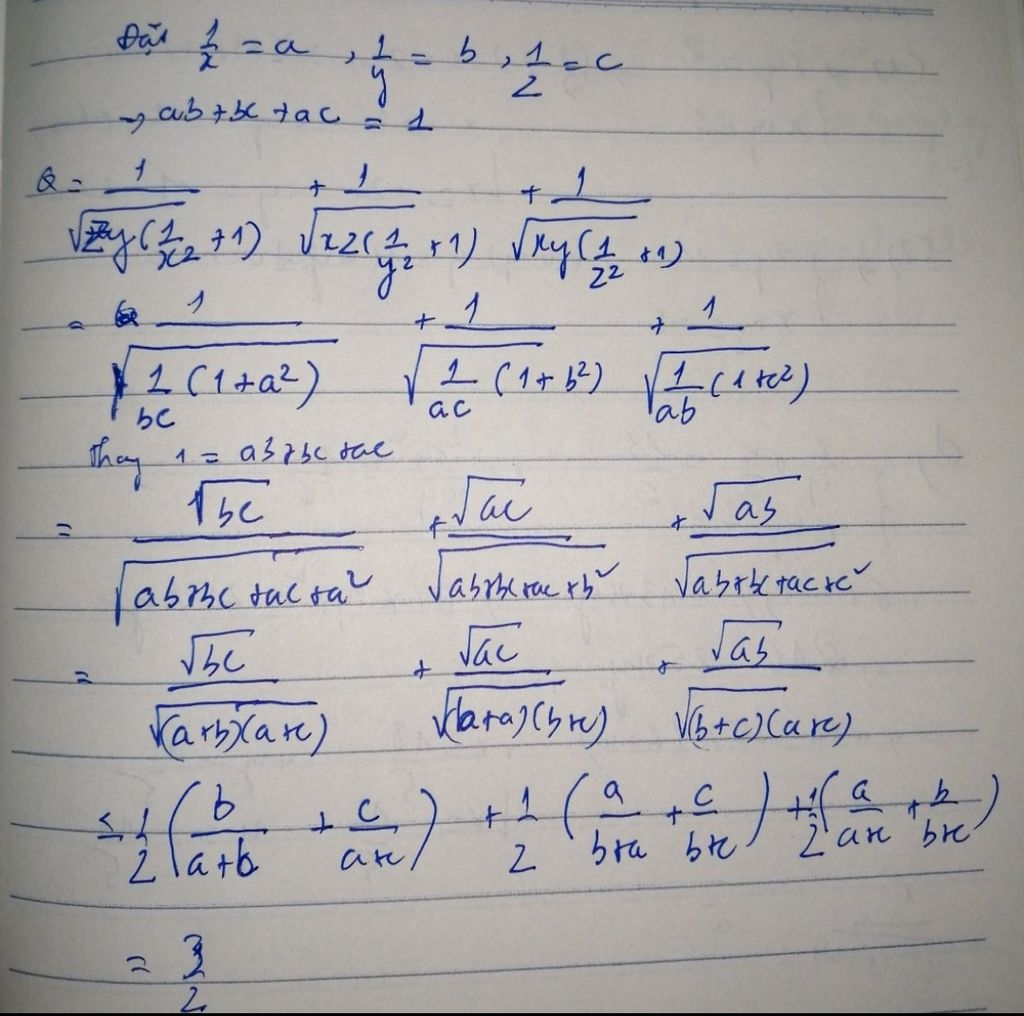 Đặt 1/x = a , 1/y = b , 1/z = c
→ ab+bc+ac = 1
Q = 1/√(zy(1/x²+1)) + 1/√(xz(1/y²+1)) + 1/√(xy(1/z²+1))
= 1/√(1/bc (1+a²)) + 1/√(1/ac (1+b²)) + 1/√(1/ab (1+c²))
Thay 1 = ab+bc+ac
= √bc/√(ab+bc+ac+a²) + √ac/√(ab+bc+ac+b²) + √ab/√(ab+bc+ac+c²)
= √bc/√((a+b)(a+c)) + √ac/√((b+a)(b+c)) + √ab/√((b+c)(a+c))
≤ 1/2 (b/(a+b) + c/(a+c)) + 1/2 (a/(b+a) + c/(b+c)) + 1/2 (a/(a+c) + b/(b+c))
= 3/2